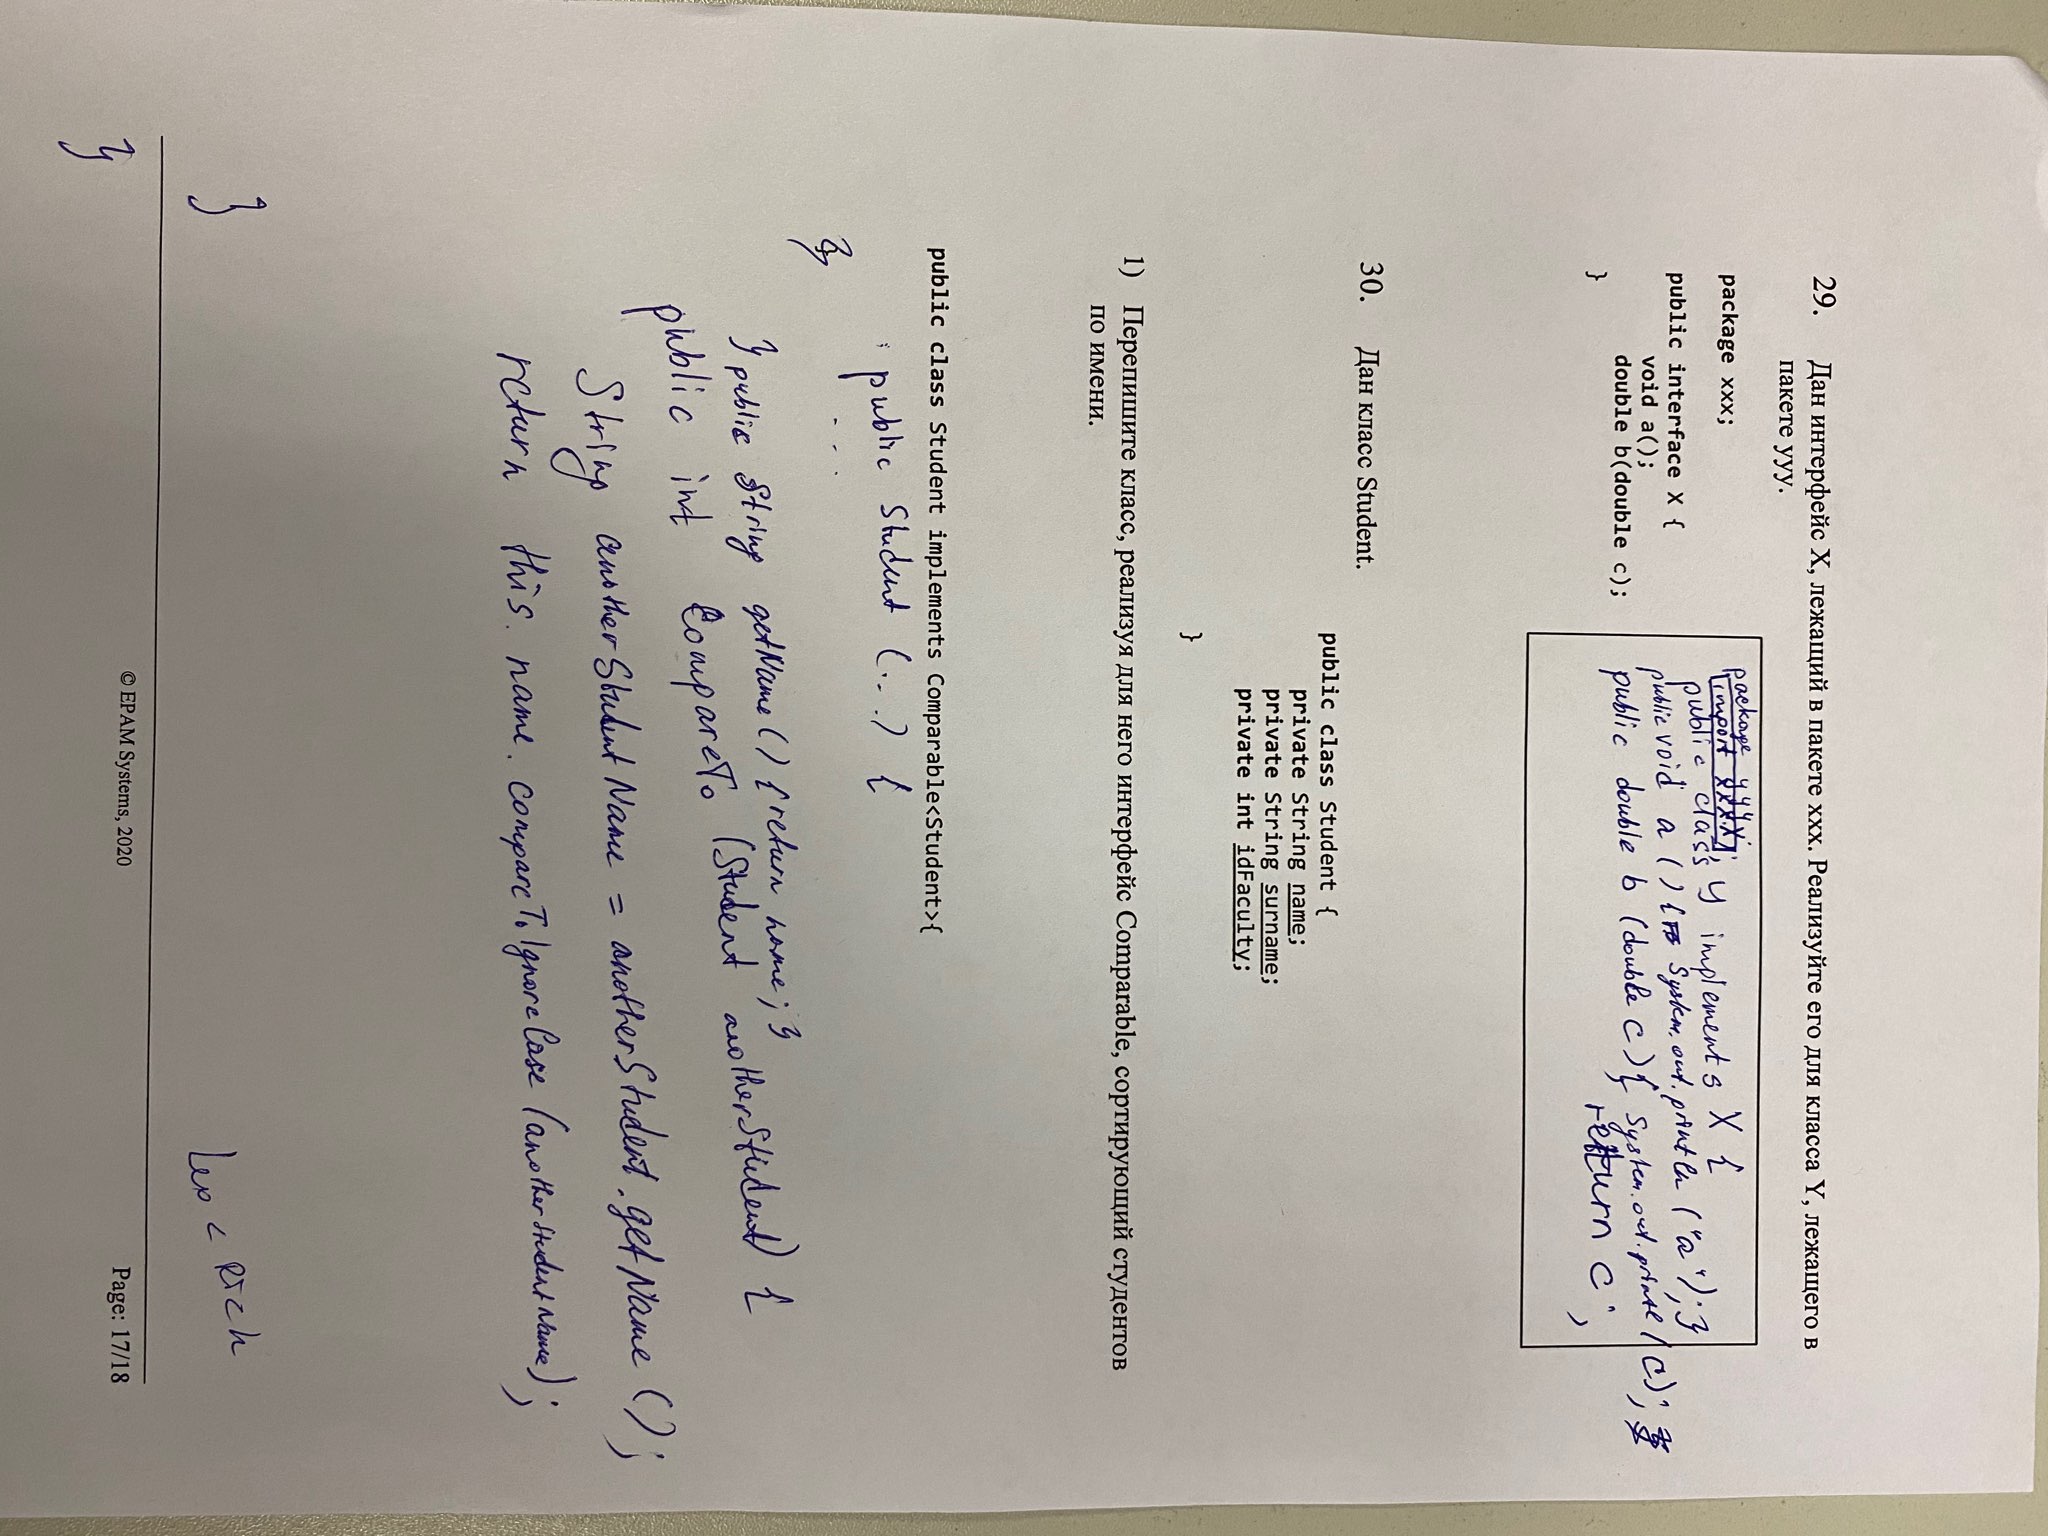 29. Дан интерфейс X, лежащий в пакете xxx. Реализуйте его для класса Y, лежащего в
пакете yyy.
package xxx;
public interface X {
void a();
double b(double c);
}
package yyy;
import xxx.X;
public class Y implements X {
public void a () { System.out.println ("a"); }
public double b (double c) { System.out.println (c);
return c;
30. Дан класс Student.
public class Student {
private String name;
private String surname;
private int idFaculty;
}
1) Перепишите класс, реализуя для него интерфейс Comparable, сортирующий студентов
по имени.
public class Student implements Comparable<Student>{
public Student (...) {
...
} public String getName () { return name; }
public int CompareTo (Student anotherStudent) {
String anotherStudentName = anotherStudent.getName ();
return this.name.compareToIgnoreCase (anotherStudentName);
}
}
© EPAM Systems, 2020
Page: 17/18